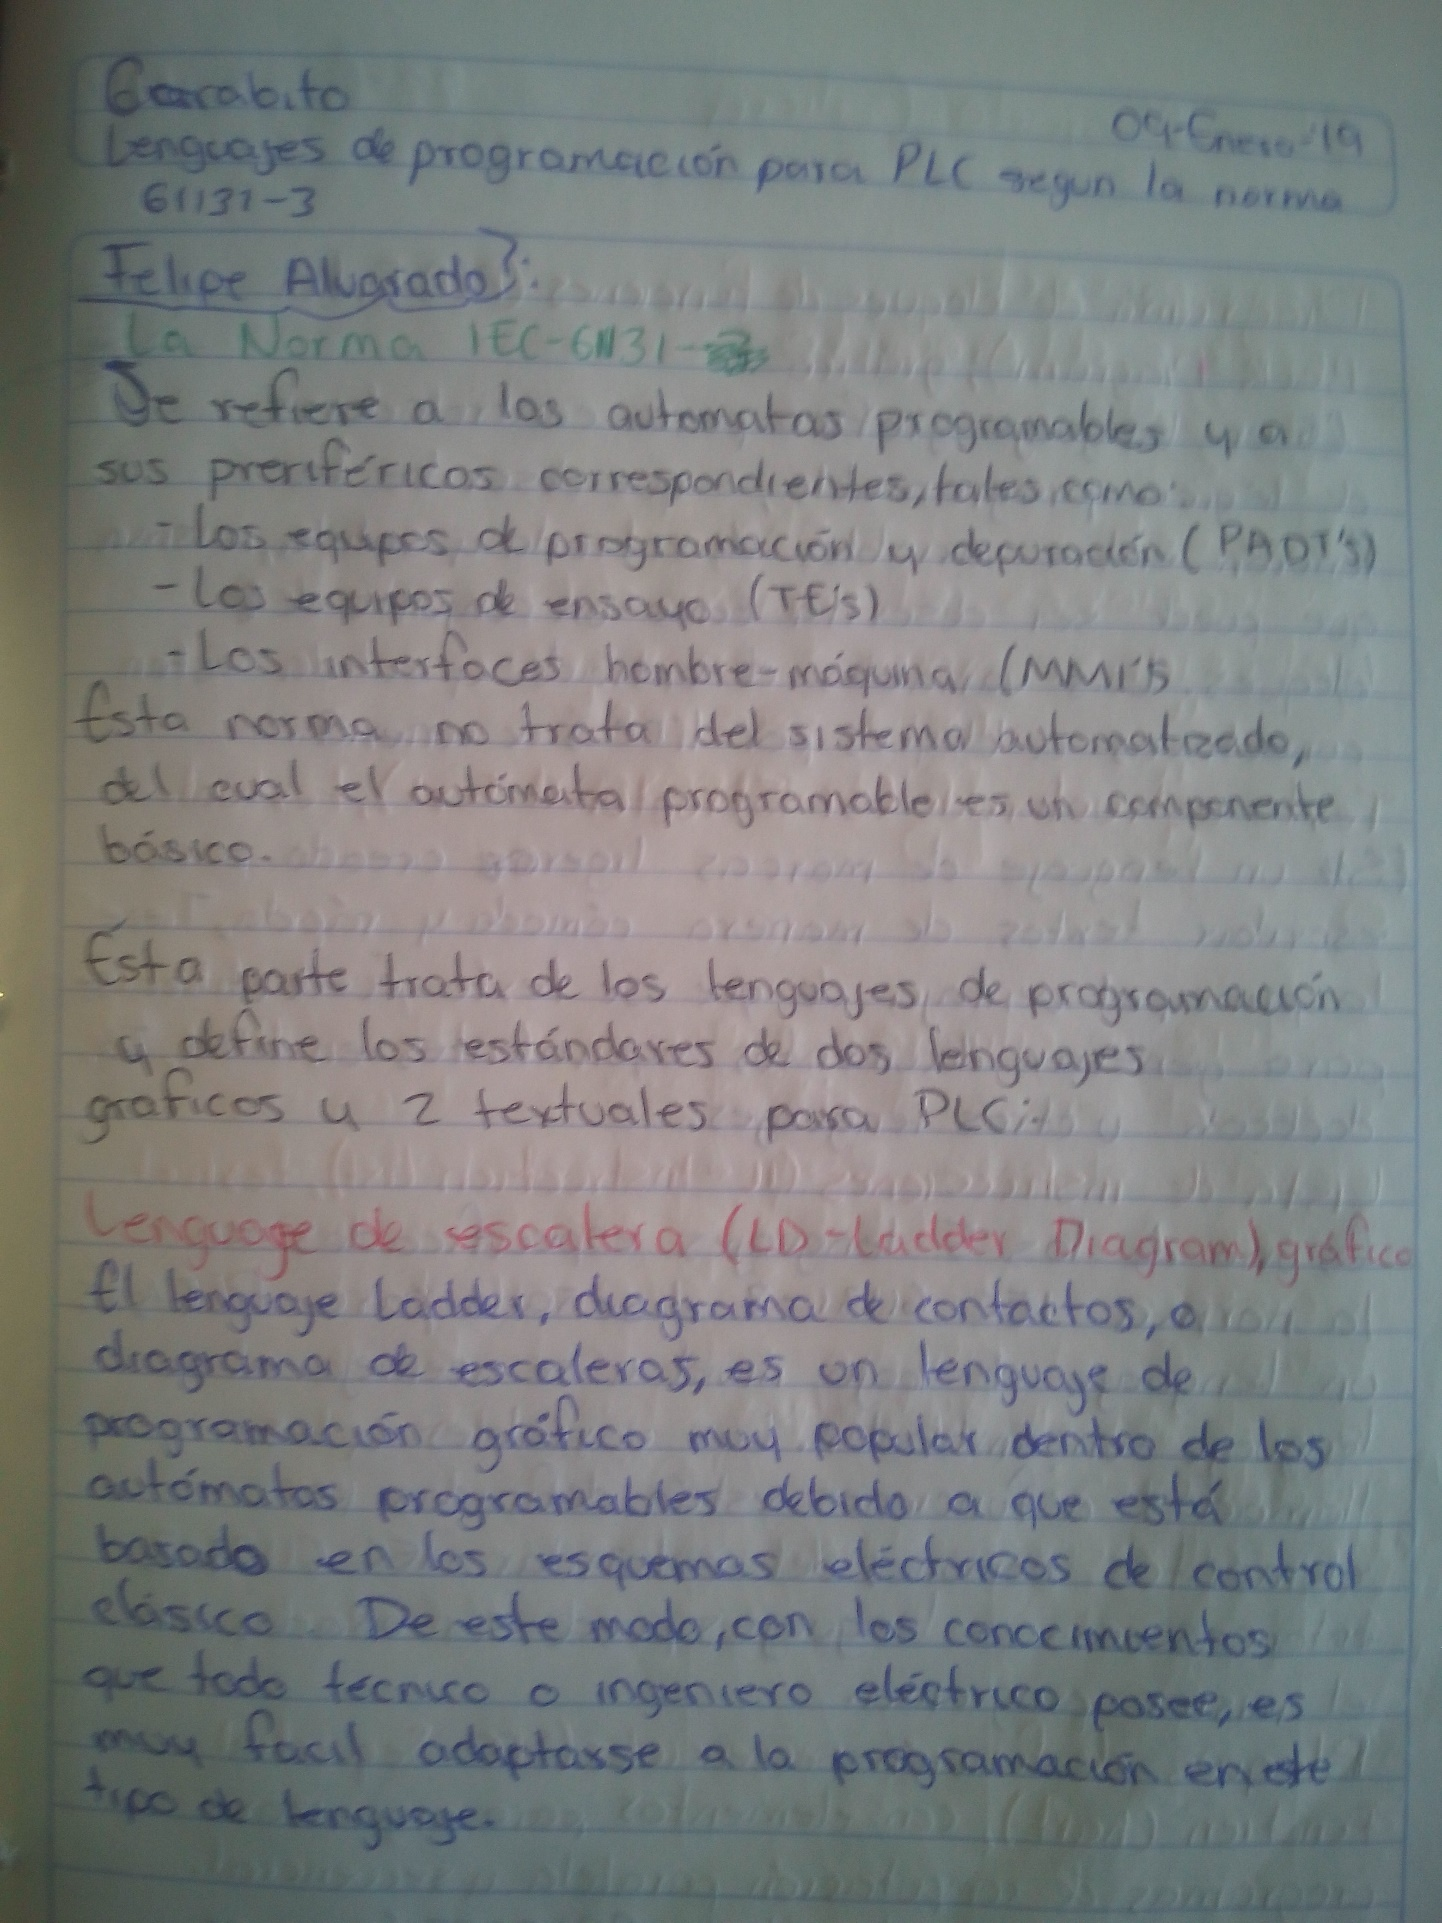 Garabito
09-Enero-19
Lenguajes de programación para PLC segun la norma
61131-3
Felipe Alvarado}:
La Norma IEC-61131-
Se refiere a los automatas programables y a
sus preriféricos correspondientes, tales como:
- Los equipos de programación y depuración (PADT's)
- Los equipos de ensayo (TE's)
- Los interfaces hombre-máquina (MMI's
Esta norma no trata del sistema automatizado,
del cual el autómata programable es un componente
básico.
Esta parte trata de los lenguajes de programación
y define los estándares de dos lenguajes
gráficos y 2 textuales para PLC:
Lenguage de escalera (LD-Ladder Diagram), gráfico
El lenguaje Ladder, diagrama de contactos, o
diagrama de escaleras, es un lenguaje de
programación gráfico muy popular dentro de los
autómatas programables debido a que está
basado en los esquemas eléctricos de control
clásico. De este modo, con los conocimientos
que todo técnico o ingeniero eléctrico posee, es
muy facil adaptarse a la programación en este
tipo de lenguaje.